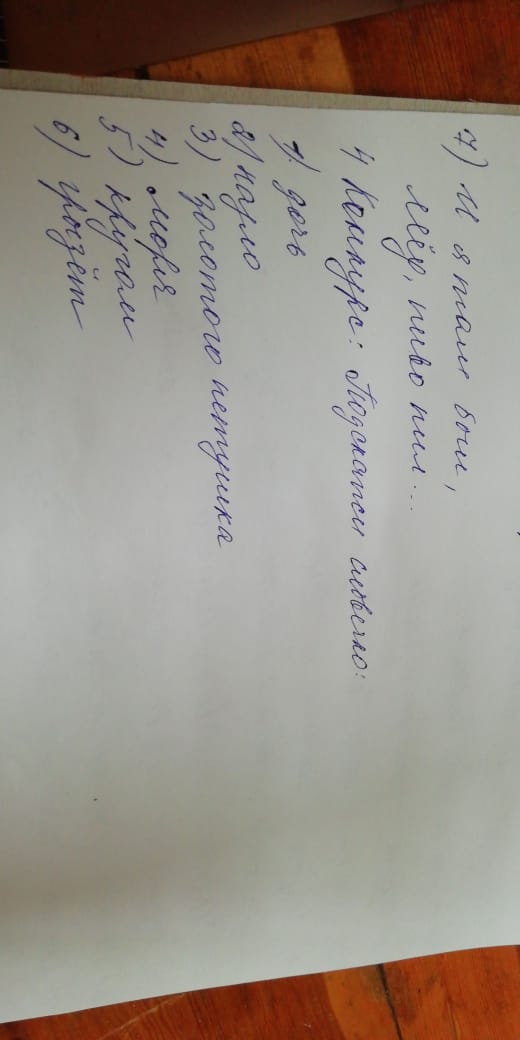 7) И я там был,
мёд, пиво пил...
4 Конкурс: Подскажи словечко:
1) дочь
2) назло
3) золотого петушка
4) моря
5) кругом
6) грызёт